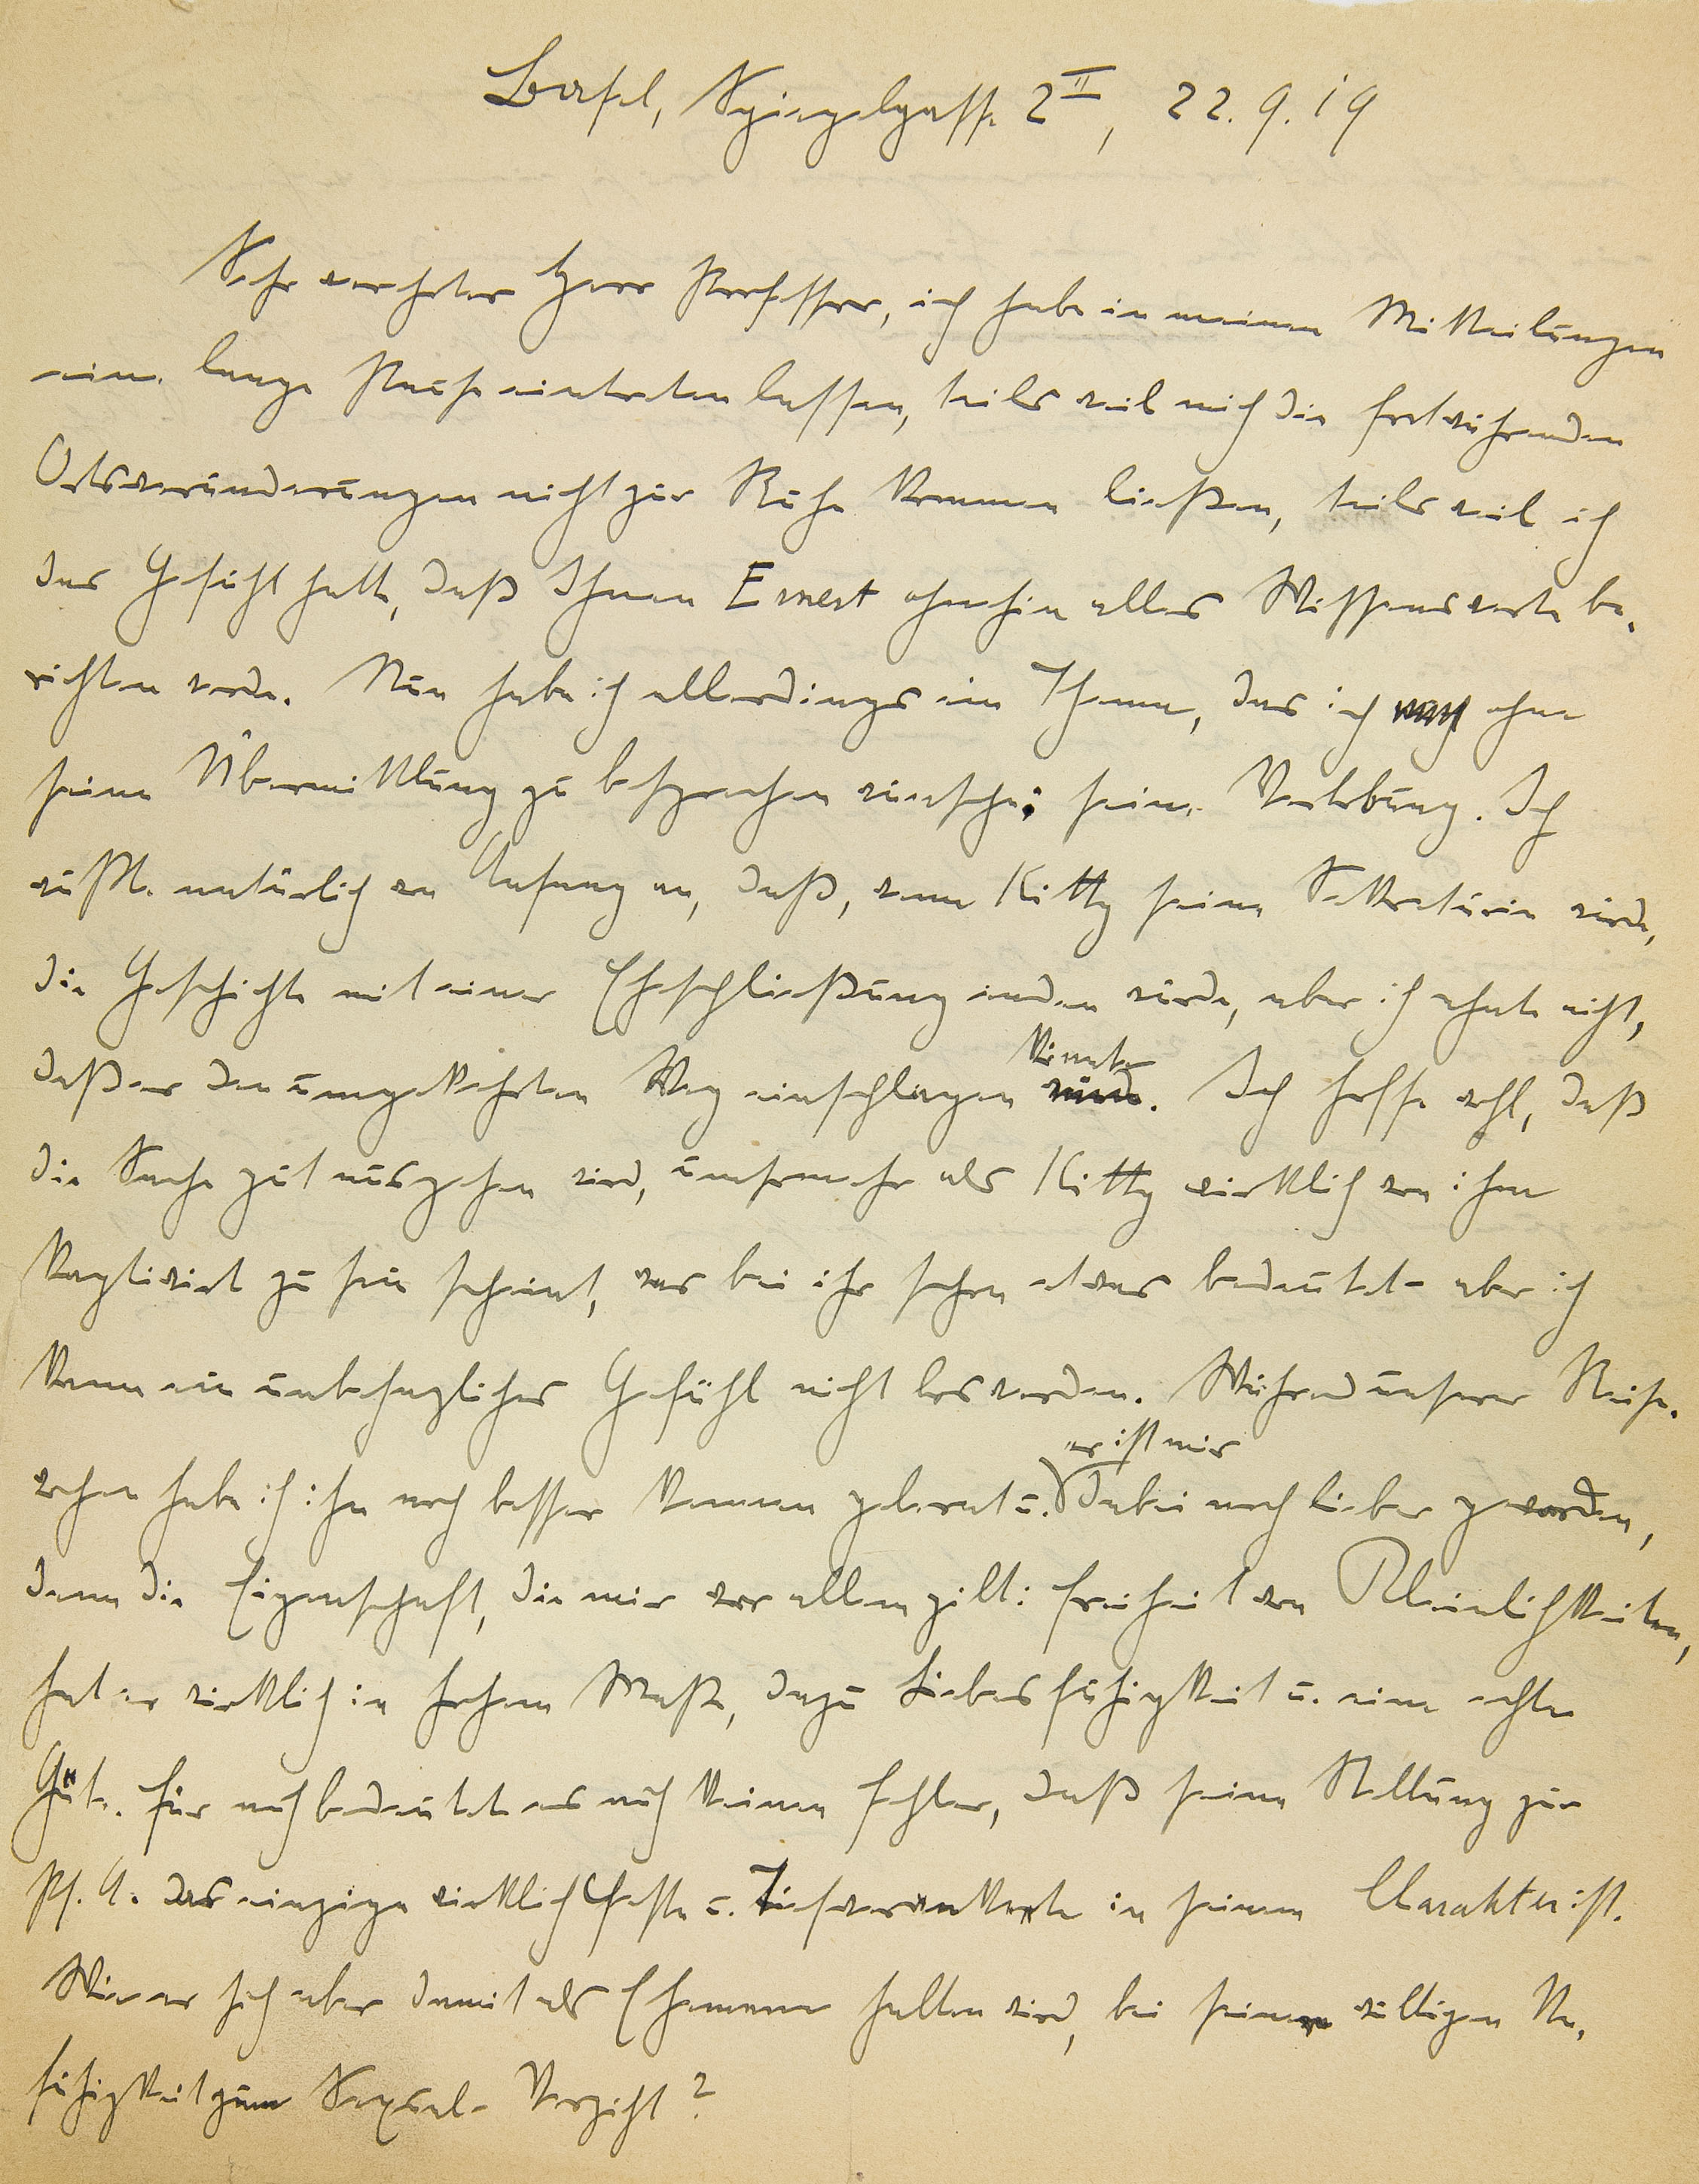 Basel, Spiegelgasse 2II, 22.9.19
Sehr verehrter Herr Professor, ich habe in meinen Mitteilungen
eine lange Pause eintreten lassen, teils weil mich die fortwährenden
Ortsveränderungen nicht zur Ruhe kommen ließen, teils weil ich
das Gefühl hatte, daß Ihnen Ernest ohnehin alles Wissenswerte be-
richten werde. Nun habe ich allerdings ein Thema, das ich ohne
seine Übermittlung zu besprechen wünsche: seine Verlobung. Ich
wußte natürlich von Anfang an, daß, wenn Kitty seine Sekretärin würde,
die Geschichte mit einer Eheschließung enden würde, aber ich ahnte nicht,
daß er den umgekehrten Weg einschlagen könnte. Ich hoffe wohl, daß
die Sache gut ausgehen wird, umsomehr als Kitty wirklich von ihm
kaptiviert zu sein scheint, was bei ihr schon etwas bedeutet – aber ich
kann ein unbehagliches Gefühl nicht loswerden. Während unserer Reise-
wochen habe ich ihn noch besser kennen gelernt u. er ist mir dabei noch lieber geworden,
denn die Eigenschaft, die mir vor allem gilt: Freiheit von Kleinlichkeiten,
hat er wirklich in hohem Maße, dazu Liebesfähigkeit u. eine echte
Güte. Für mich bedeutet es auch keinen Fehler, daß seine Stellung zur
Ps.A. das einzige wirklich feste u. Tiefverankerte in seinem Charakter ist.
Wie er sich aber damit als Ehemann halten wird, bei seiner völligen Un-
fähigkeit zum Sexual-Verzicht?